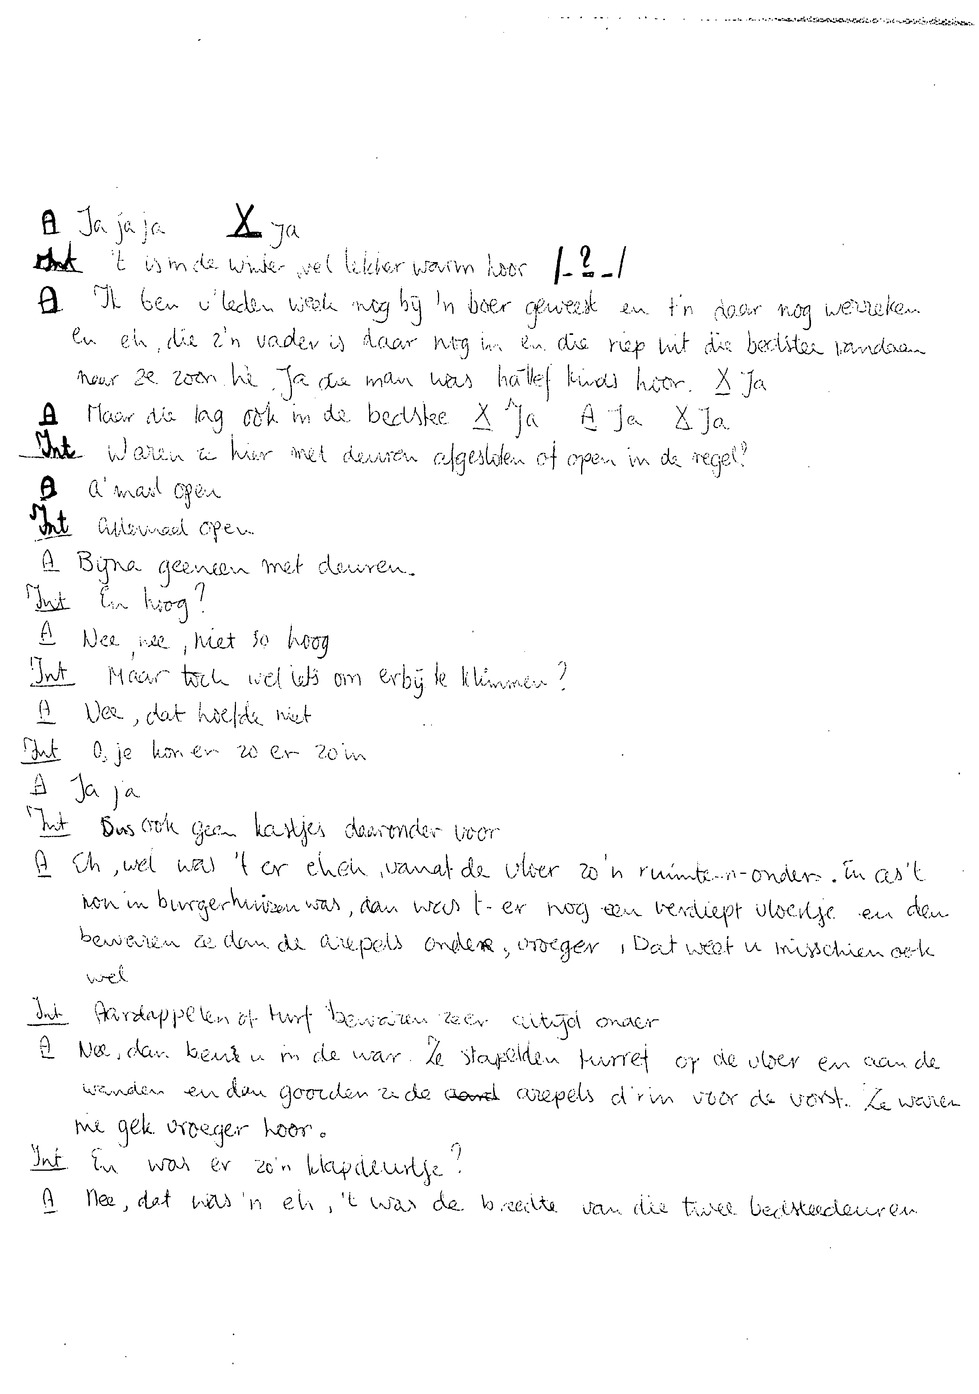 A Ja ja ja X Ja
Int 't is in de winter wel lekker warm hoor /-?-/
A Ik ben v'leden week nog bij 'n boer geweest en t'n daar nog werreken
en eh, die z'n vader is daar nog in en die riep uit die bedstee vandaan
naar ze zoon hè. Ja die man was hallef kinds hoor. X Ja
A Maar die lag ook in de bedstee X Ja A Ja X Ja
Int Waren ze hier met deuren afgesloten of open in de regel?
A A'maal open
Int Allemaal open
A Bijna geeneen met deuren.
Int En hoog?
A Nee, nee, niet so hoog
Int Maar toch wel iets om erbij te klimmen?
A Nee, dat hoefde niet
Int O, je kon er zo er zo in
A Ja ja
Int Dus ook geen kastjes daaronder voor
A Eh, wel was 't er eheh, vanaf de vloer zo'n ruimte-n-onder. En as 't
non in burgerhuizen was, dan was t-er nog een verdiept vloertje en den
bewaren ze dan de arepels onder, vroeger, Dat weet u misschien ook
wel
Int Aardappelen of turf bewaren ze er altijd onder
A Nee, dan bent u in de war. Ze stapelden turref op de vloer en aan de
wanden en dan gooiden ze de arepels d'r in voor de vorst. Ze waren
nie gek vroeger hoor.
Int En was er zo'n klapdeurtje?
A Nee, dat was 'n eh, 't was de breedte van die twee bedsteedeuren